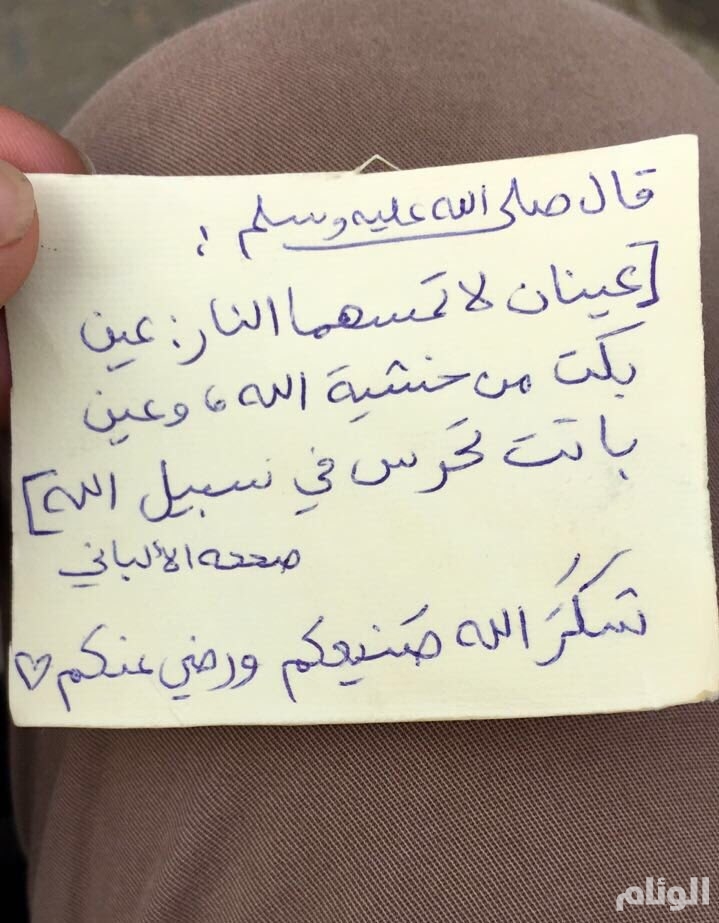 قال صلى الله عليه وسلم :
[عينان لا تمسهما النار: عين
بكت من خشية الله، وعين
باتت تحرس في سبيل الله]
صححه الألباني
شكرَ الله صَنيعكم ورضي عنكم ♡
الوئام